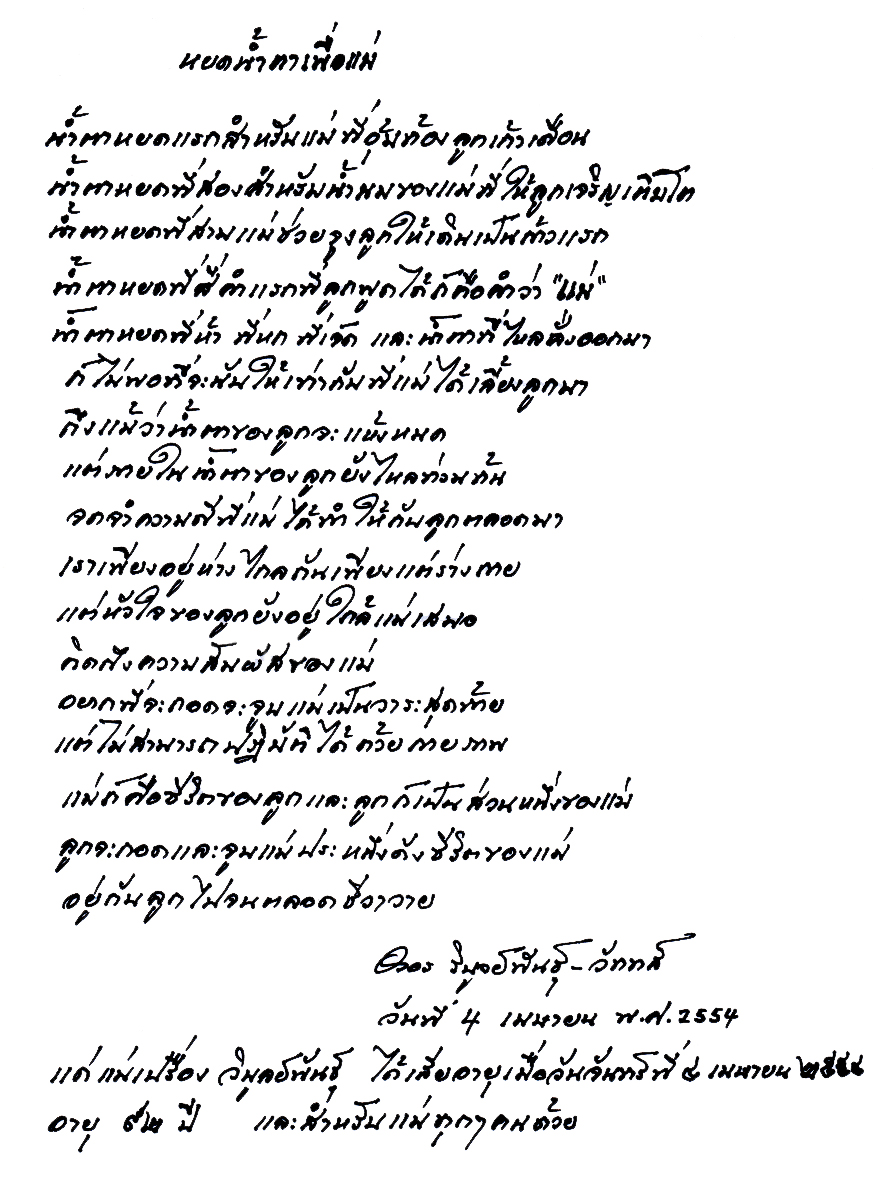 หยดน้ำตาเพื่อแม่
น้ำตาหยดแรกสำหรับแม่ที่อุ้มท้องลูกเก้าเดือน
น้ำตาหยดที่สองสำหรับน้ำนมของแม่ที่ให้ลูกเจริญเติบโต
น้ำตาหยดที่สามแม่ช่วยจูงลูกให้เดินเป็นก้าวแรก
น้ำตาหยดที่สี่คำแรกที่ลูกพูดได้ก็คือคำว่า "แม่"
น้ำตาหยดที่ห้า ที่หก ที่เจ็ด และน้ำตาที่ไหลหลั่งออกมา
ก็ไม่พอที่จะนับให้เท่ากับที่แม่ได้เลี้ยงลูกมา
ถึงแม้ว่าน้ำตาของลูกจะแห้งหมด
แต่ภายในน้ำตาของลูกยังไหลท่วมท้น
จดจำความดีที่แม่ได้ทำให้กับลูกตลอดมา
เราเพียงอยู่ห่างไกลกันเพียงแต่ร่างกาย
แต่หัวใจของลูกยังอยู่ใกล้แม่เสมอ
คิดถึงความสัมผัสของแม่
อยากที่จะกอดจะจูบแม่เป็นวาระสุดท้าย
แต่ไม่สามารถปฏิบัติได้ด้วยกายภาพ
แม่ก็คือชีวิตของลูกและลูกก็เป็นส่วนหนึ่งของแม่
ลูกจะกอดและจูบแม่ประหนึ่งดังชีวิตของแม่
อยู่กับลูกไปจนตลอดชีวาวาย
วิบูลย์พันธุ์ - วัททส์
วันที่ 4 เมษายน พ.ศ. 2554
แด่แม่เปรื่อง วิบูลย์พันธุ์ ได้เสียอายุเมื่อวันจันทร์ที่ ๔ เมษายน ๒๕๕๔
อายุ ๙๒ ปี และสำหรับแม่ทุกๆคนด้วย